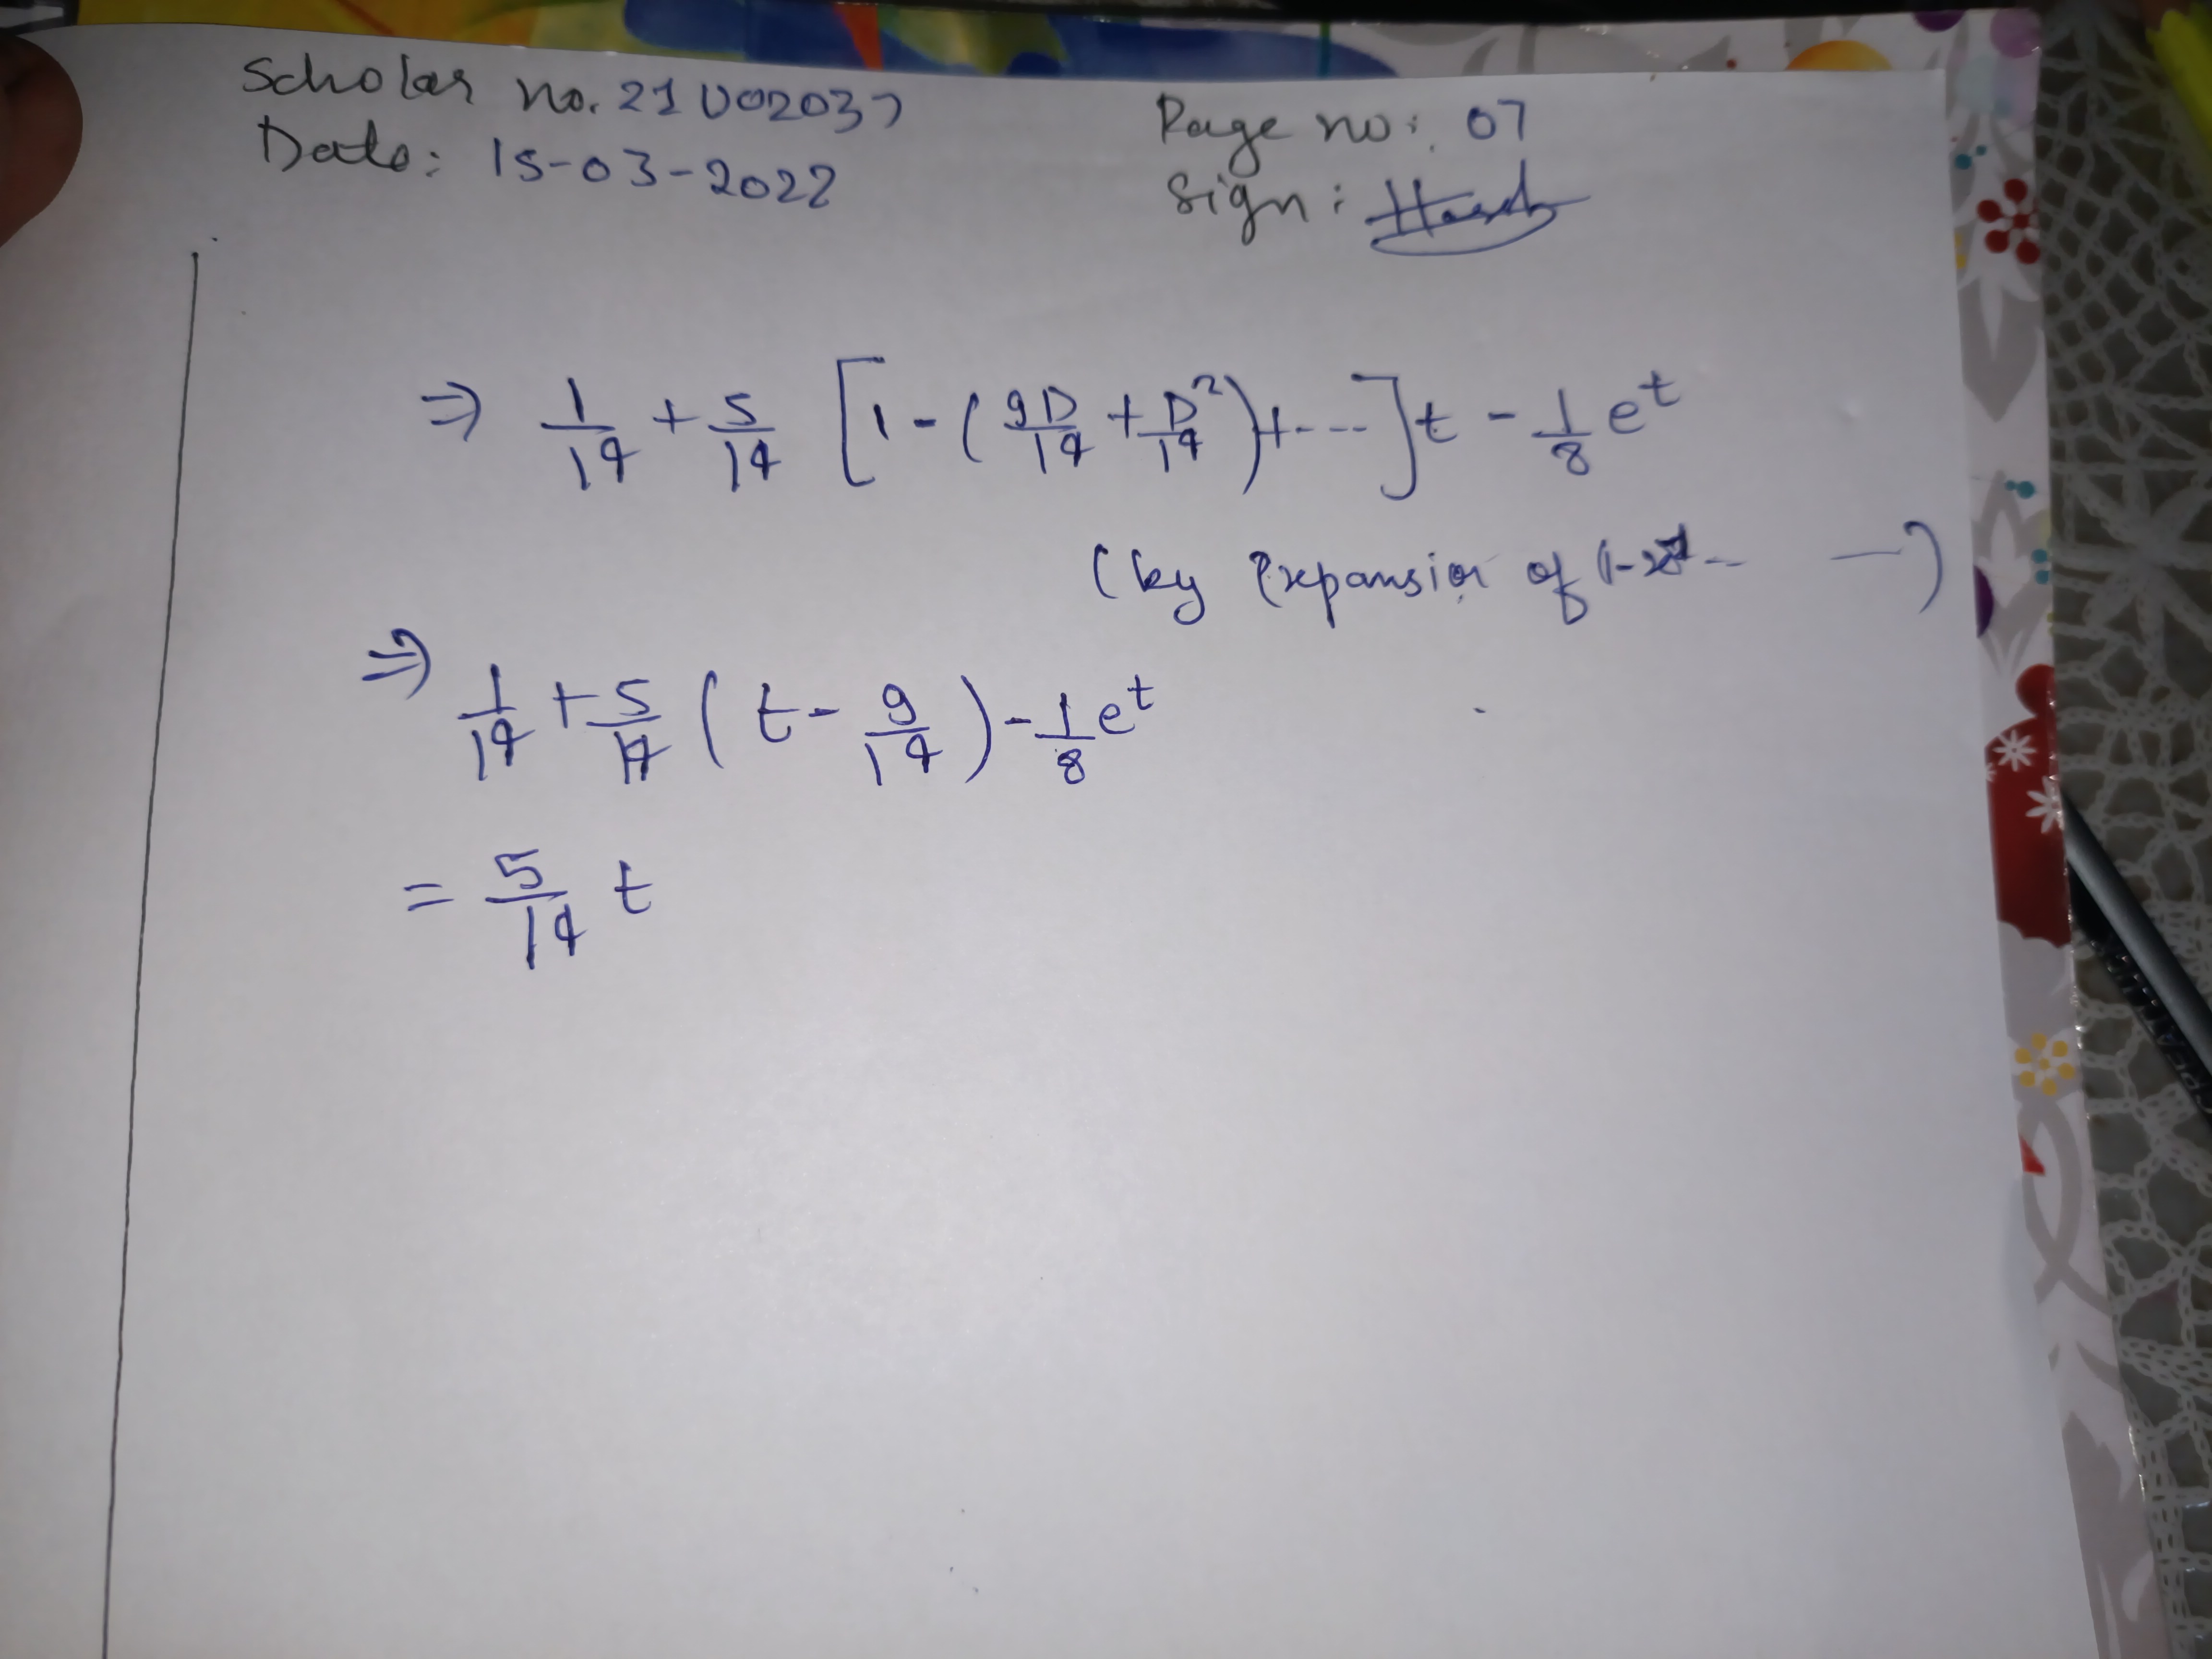 Scholar no. 21U02037
Date: 15-03-2022
Page no: 07
Sign: Harsh
⇒ 1/14 + 5/14 [1 - (9D/14 + D²/14) + ---] t - 1/8 e^t
(by Expansion of
⇒ 1/14 + 5/14 (t - 9/14) - 1/8 e^t
= 5/14 t